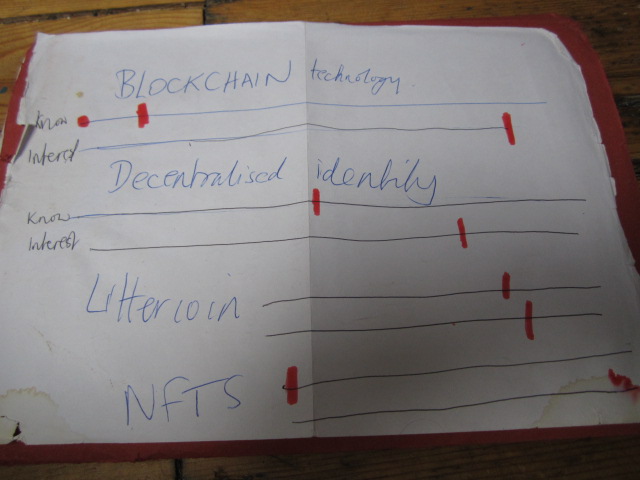 BLOCKCHAIN technology
Know
Interest
Decentralised identity
Know
Interest
Littercoin
NFTS